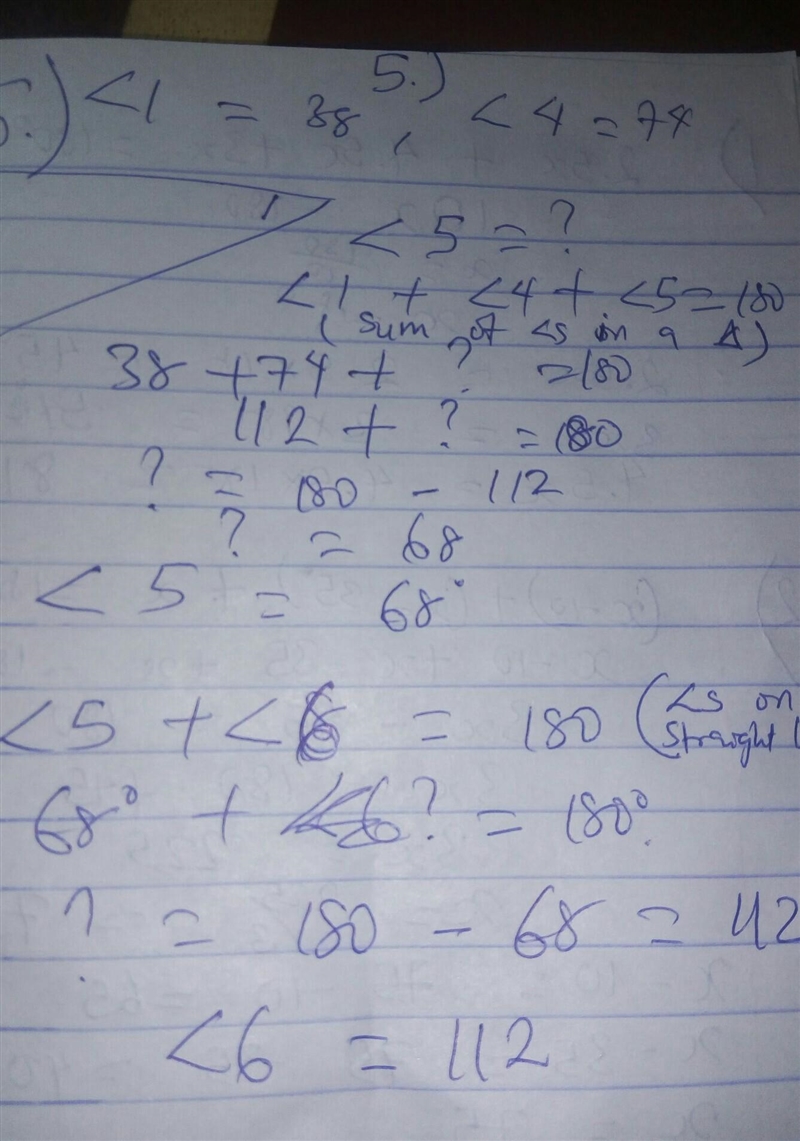 5.)
5.) <1 = 38, <4 = 74
1
<5 = ?
<1 + <4 + <5 = 180
(sum of <s in a Δ)
38 + 74 + ? = 180
112 + ? = 180
? = 180 - 112
? = 68
<5 = 68°
<5 + <6 = 180 (<s on
straight
68° + ? = 180°.
? = 180 - 68 = 112
<6 = 112